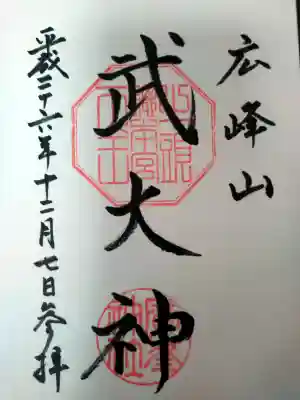 広峰山
武大神
平成二十六年十二月七日参拝